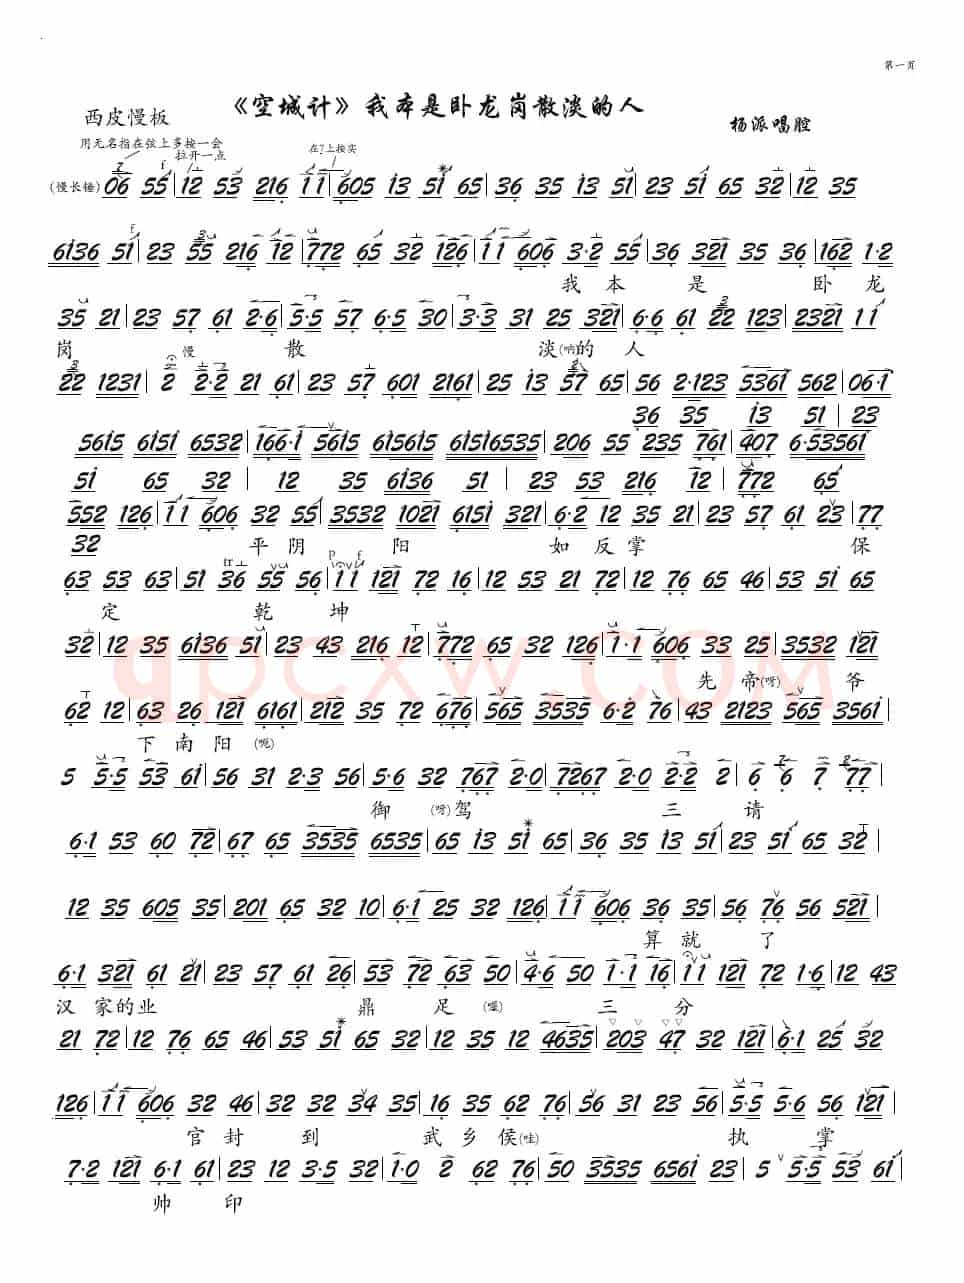 第一页
《空城计》我本是卧龙岗散淡的人
西皮慢板
杨派唱腔
用无名指在弦上多按一会
拉开一点
在7上按实
(慢长锤) 06 55 | 12 53 216 11 | 605 13 51 65 | 36 35 13 51 | 23 51 65 32 | 12 35
6136 51 | 23 55 216 12 | 7772 65 32 126 | 11 606 3·2 55 | 36 321 35 36 | 162 1·2
我 本 是 卧 龙
35 21 | 23 57 61 2·6 | 5·5 57 6·5 30 | 3·3 31 25 321 | 6·6 61 22 123 | 2321 11
岗 慢 散 淡 (呐) 的 人
22 1231 | 2 2·2 21 61 | 23 57 601 2161 | 25 13 57 65 | 56 2·123 5361 562 | 06·1
36 35 13 51 | 23
5615 6151 6532 | 166·1 5615 615615 61516535 | 206 55 235 761 | 407 6·53561
51 65 32 | 12 35 6136 51 | 23 53 216 12 | 7772 65
552 126 | 11 606 32 55 | 3532 1021 6151 321 | 6·2 12 35 21 | 23 57 61 23 | 77
32
平 阴 阳 如 反 掌 保
63 53 63 | 51 36 55 56 | 11 121 72 16 | 12 53 21 72 | 12 76 65 46 | 53 51 65
定 乾 坤
32 | 12 35 6136 51 | 23 43 216 12 | 7772 65 32 126 | 1·1 606 33 25 | 3532 121
先 帝 (呀) 爷
62 12 | 63 26 121 6161 | 212 35 72 676 | 565 3535 6·2 76 | 43 2123 565 3561
下 南 阳 (呃)
5 5·5 53 61 | 56 31 2·3 56 | 5·6 32 767 2·0 | 7267 2·0 2·2 2 | 6 6 7 77
御 (呀) 驾 三 请
6·1 53 60 72 | 67 65 3535 6535 | 65 13 51 65 | 36 35 13 51 | 23 51 65 32
12 35 605 35 | 201 65 32 10 | 6·1 25 32 126 | 11 606 36 35 | 56 76 56 521
算 就 了
6·1 321 61 21 | 23 57 61 26 | 53 72 63 50 | 4·6 50 1·1 16 | 11 121 72 1·6 | 12 43
汉 家 的 业 鼎 足 (嘿) 三 分
21 72 | 12 76 65 46 | 53 51 65 32 | 12 35 12 4635 | 203 47 32 121 | 6·1 25 32
126 | 11 606 32 46 | 32 32 34 35 | 16 35 62 76 | 56 31 23 56 | 5·5 5·6 56 121
官 封 到 武 乡 侯 (哇) 执 掌
7·2 121 6·1 61 | 23 12 3·5 32 | 1·0 2 62 76 | 50 3535 6561 23 | 5 5·5 53 61
帅 印
qpcxw.COM